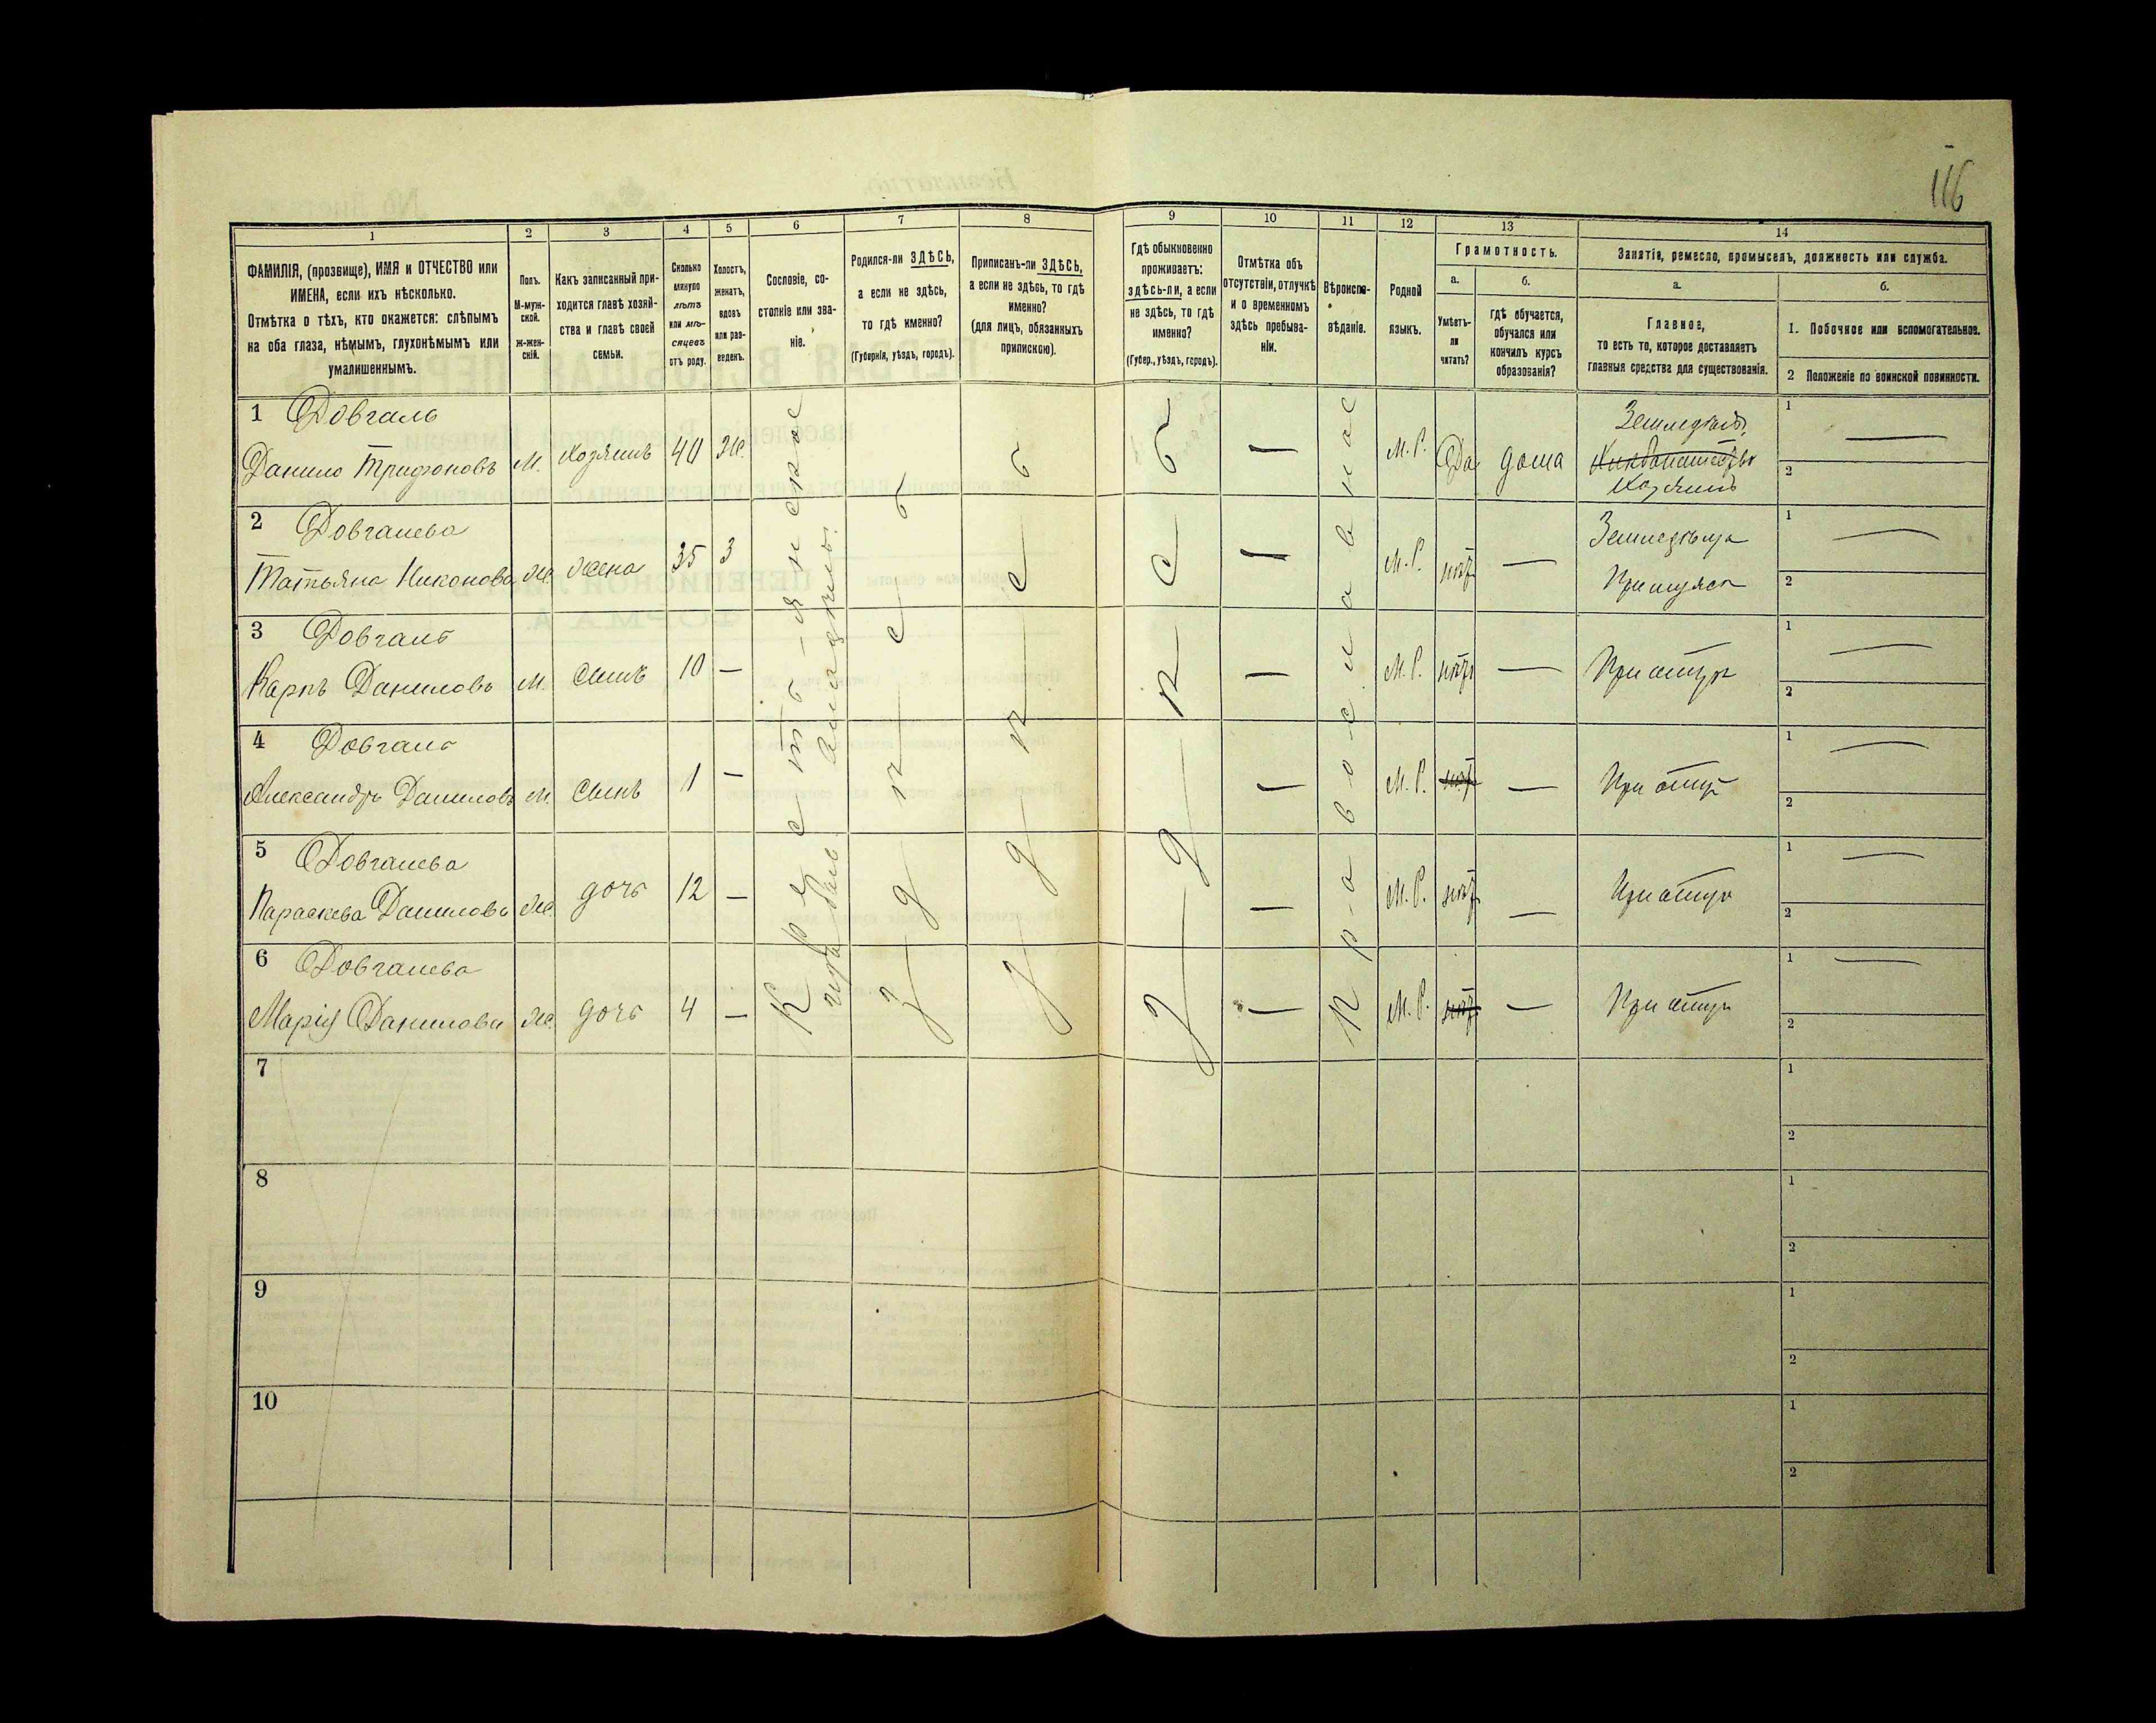 116
1
2
3
4
5
6
7
8
9
10
11
12
13
14
ФАМИЛІЯ, (прозвище), ИМЯ и ОТЧЕСТВО или
ИМЕНА, если ихъ нѣсколько.
Отмѣтка о тѣхъ, кто окажется: слѣпымъ
на оба глаза, нѣмымъ, глухонѣмымъ или
умалишеннымъ.
Полъ.
М-муж-
ской.
ж-жен-
скій.
Какъ записанный при-
ходится главѣ хозяй-
ства и главѣ своей
семьи.
Сколько
минуло
лѣтъ
или мѣ-
сяцевъ
отъ роду.
Холостъ,
женатъ,
вдовъ
или раз-
веденъ.
Сословіе, со-
стояніе или зва-
ніе.
Родился-ли ЗДѢСЬ,
а если не здѣсь,
то гдѣ именно?
(Губернія, уѣздъ, городъ).
Приписанъ-ли ЗДѢСЬ,
а если не здѣсь, то гдѣ
именно?
(для лицъ, обязанныхъ
припискою).
Гдѣ обыкновенно
проживаетъ:
здѣсь-ли, а если
не здѣсь, то гдѣ
именно?
(Губер., уѣздъ, городъ).
Отмѣтка объ
отсутствіи, отлучкѣ
и о временномъ
здѣсь пребыва-
ніи.
Вѣроиспо-
вѣданіе.
Родной
языкъ.
Грамотность.
а.
Умѣетъ-
ли
читать?
б.
гдѣ обучается,
обучался или
кончилъ курсъ
образованія?
Занятіе, ремесло, промыселъ, должность или служба.
а.
Главное,
то есть то, которое доставляетъ
главныя средства для существованія.
б.
1. Побочное или вспомогательное.
2 Положеніе по воинской повинности.
1 Довгаль
Данило Трифоновъ М. хозяинъ 40 Ж. — М. Р. Да дома Земледѣл.
Хозяинъ
1 —
2
2 Довгалева
Татьяна Никонова Ж. жена 35 З — М. Р. нѣт — Земледѣльца
При мужѣ
1 —
2
3 Довгаль
Карпъ Даниловъ М. сынъ 10 — — М. Р. нѣт — При отцѣ
1 —
2
4 Довгаль
Александръ Даниловъ М. сынъ 1 — — М. Р. нѣт — При отцѣ
1 —
2
5 Довгалева
Параскева Данилова Ж. дочь 12 — — М. Р. нѣт — При отцѣ
1 —
2
6 Довгалева
Марія Данилова Ж. дочь 4 — — М. Р. нѣт — При отцѣ
1 —
2
Крестьянск
здѣсь
здѣсь
здѣсь
Православнос
7
1
2
8
1
2
9
1
2
10
1
2